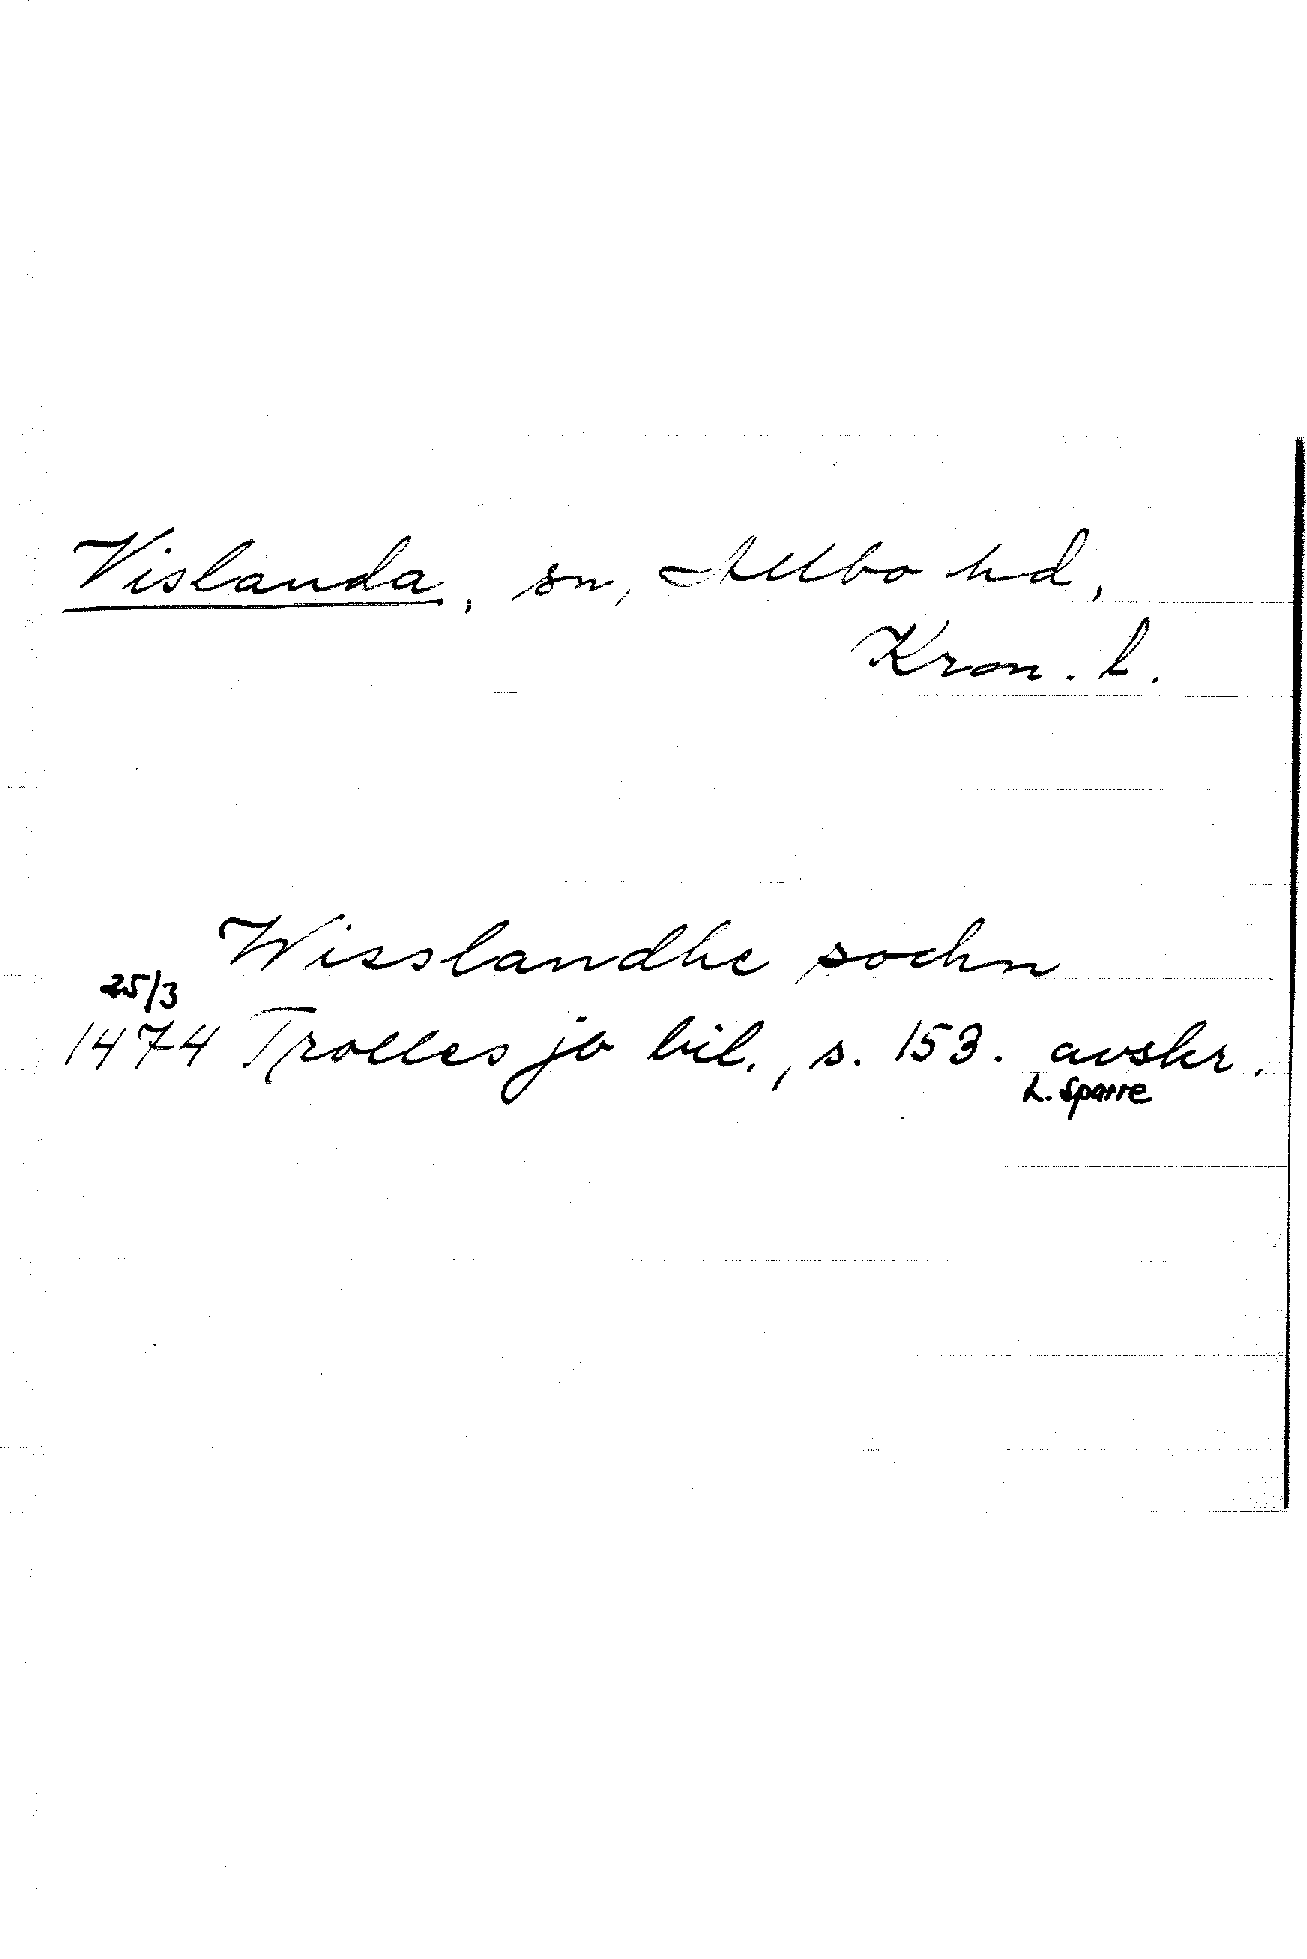 Vislanda, sn, Allbo hd,
Kron. l.
Wisslandhe sochn
25/3
1474 Trolles jb bil., s. 153. avskr.
L. Sparre